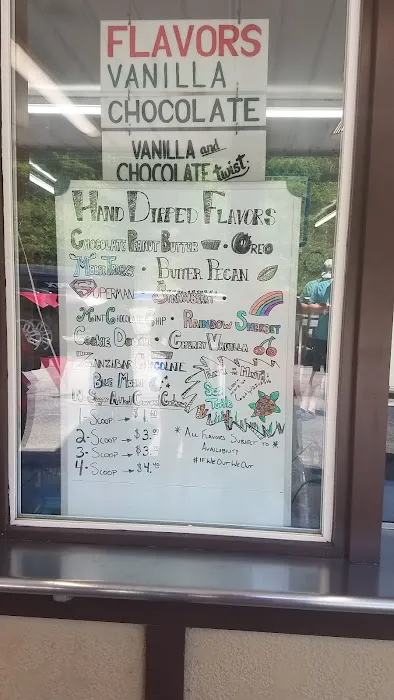 FLAVORS
VANILLA
CHOCOLATE
VANILLA and
CHOCOLATE twist
HAND DIPPED FLAVORS
CHOCOLATE PEANUT BUTTER · OREO
MOOSE TRACKS · BUTTER PECAN
SUPERMAN STRAWBERRY
MINT CHOCOLATE CHIP · RAINBOW SHERBET
COOKIE DOUGH · CHERRY VANILLA
ZANZIBAR CHOCOLATE
BLUE MOON
Sea
Turtle
1-SCOOP → $1
2-SCOOP → $3.
3-SCOOP → $3.
4-SCOOP → $4.
* ALL FLAVORS SUBJECT TO *
AVAILABILITY
#IFWEOUTWEOUT